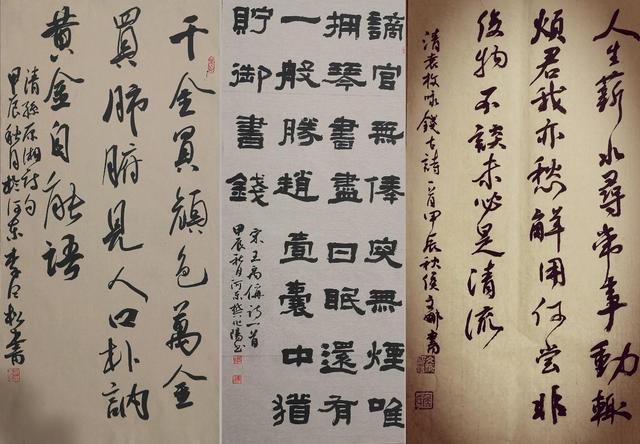 千金買顏色萬金
買肺腑見人口朴訥
黄金自能語
清孫原湘詩句
甲辰秋月於河東
謫官無俸突無煙唯
擁琴書盡日眠還有
一般勝趙壹囊中猶
貯御書錢
宋王禹偁詩一首
甲辰秋月河東樊
人生薪水尋常事動輒
煩君我亦愁解用何嘗非
俊物不談未必是清流
清袁枚咏錢古詩一首甲辰秋侯書